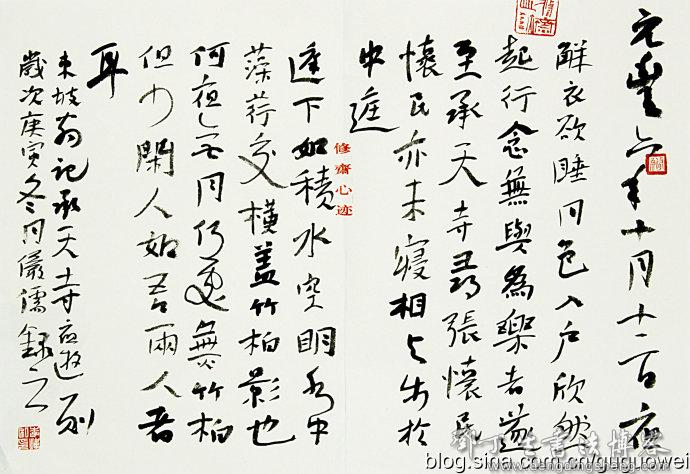 元豐六年十月十二日夜
解衣欲睡月色入戶欣然
起行念無與為樂者遂
至承天寺尋張懷民
懷民亦未寢相与步於
中庭
庭下如積水空明水中
藻荇交橫蓋竹柏影也
何夜无月何處無竹柏
但少閑人如吾兩人者
耳
東坡記承天寺夜遊
歲次庚寅冬月儒錄之
修齋心迹
鄧丁生書法博客
blog.sina.com.cn/guguowei